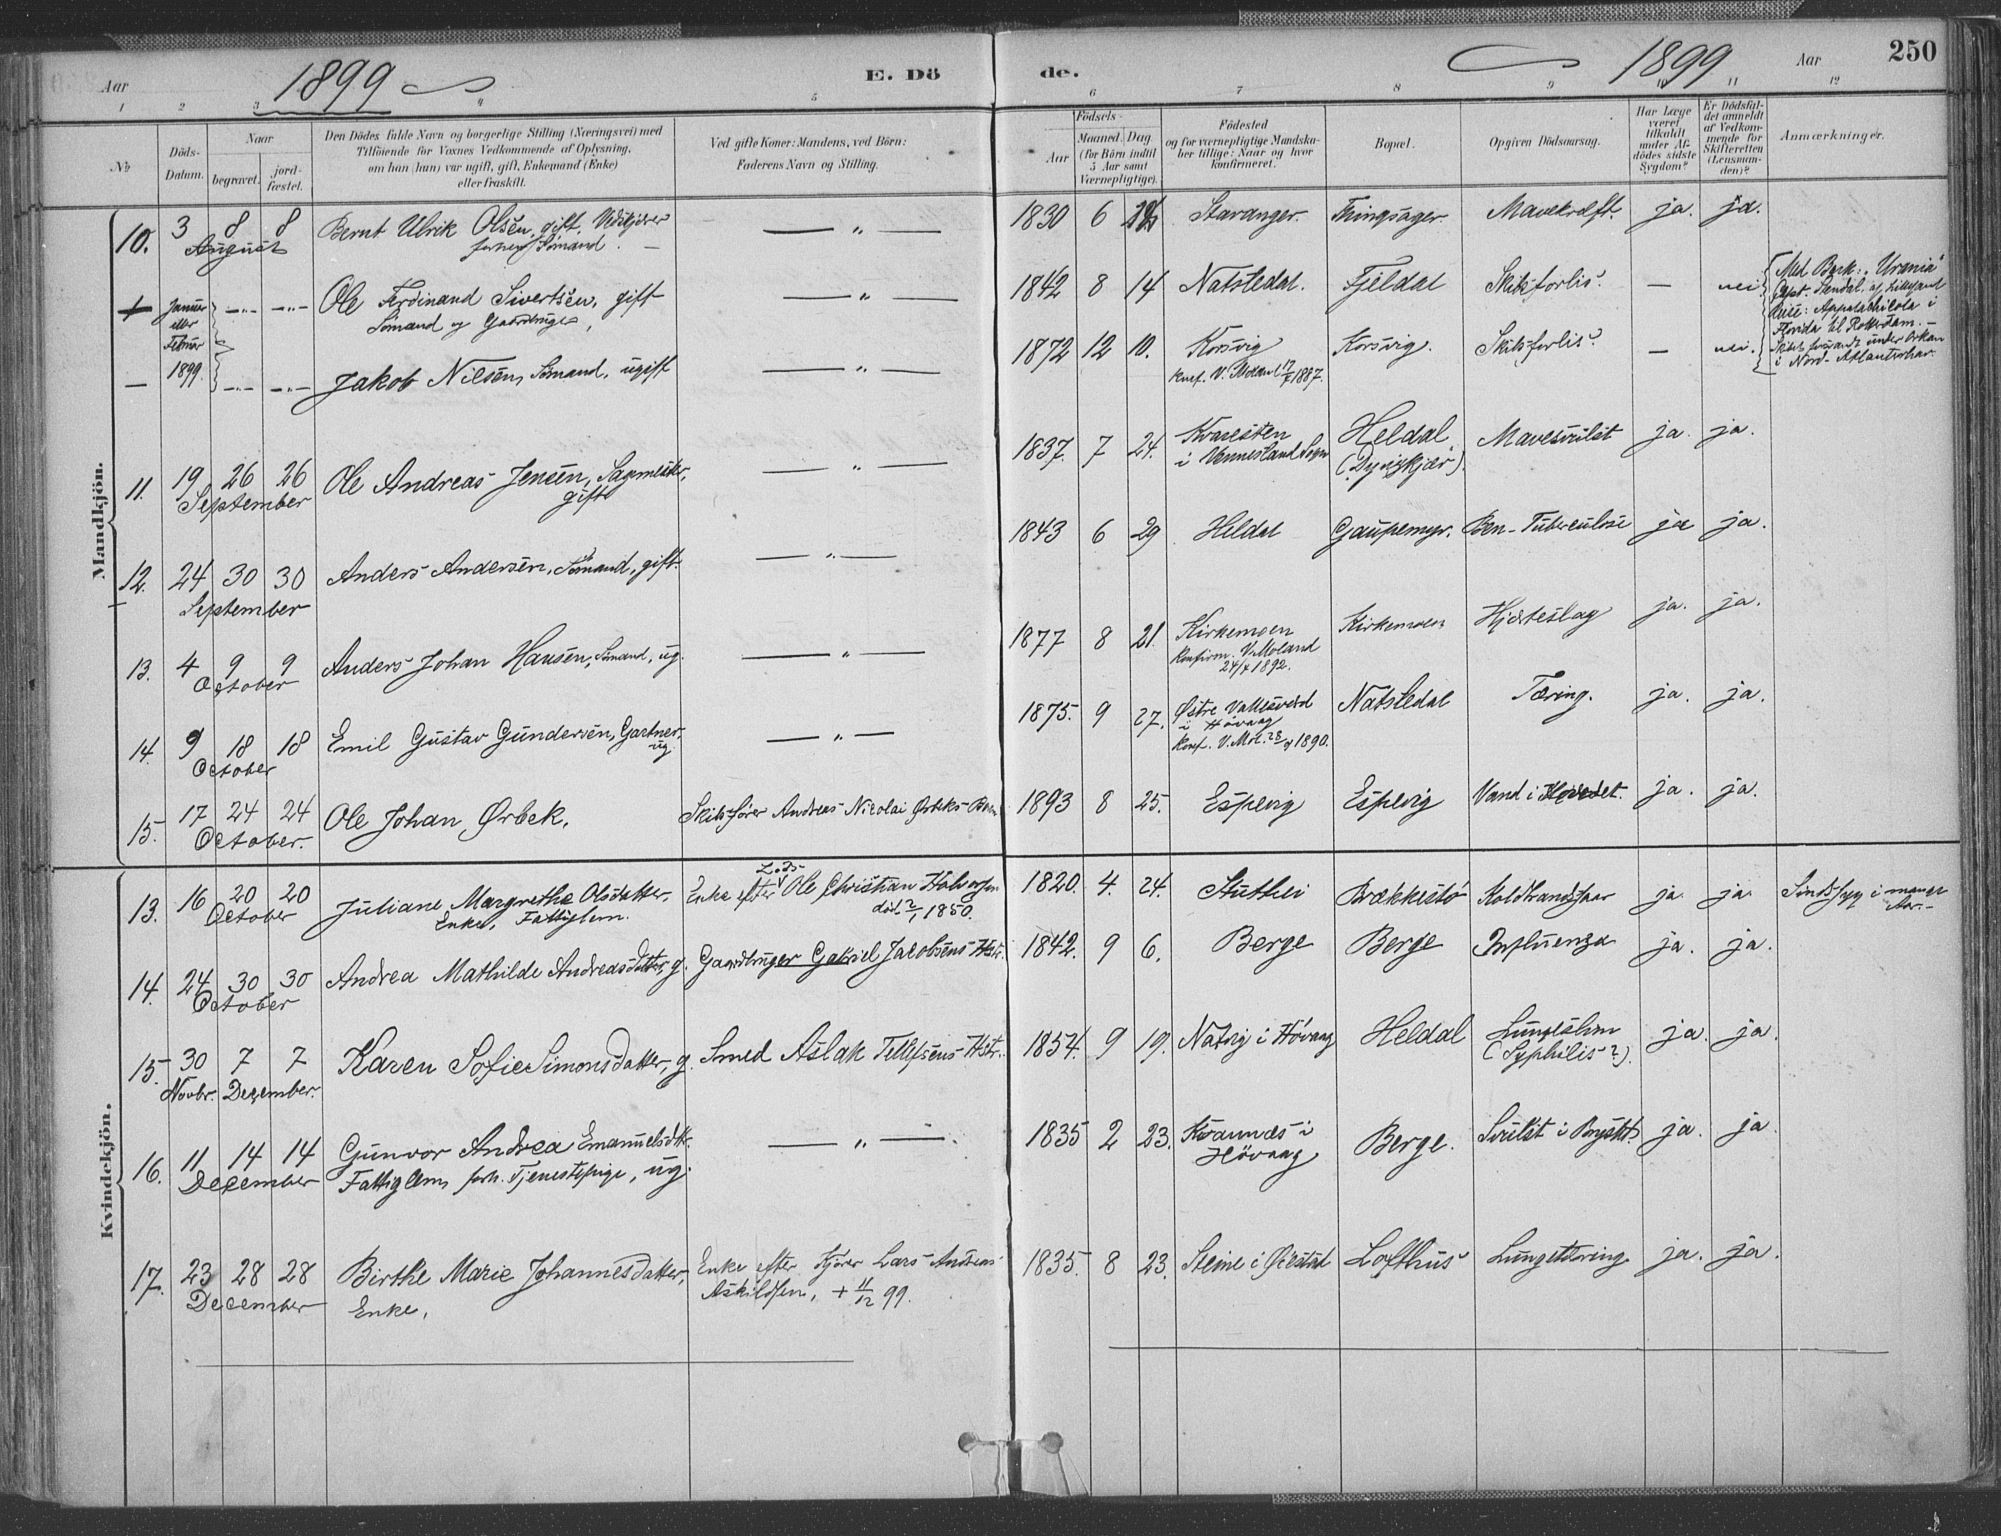 Aar 1899 E. Dö
1 2 3 4 5
№
Döds-
Datum.
Naar
begravet.
jord-
fæstet.
Den Dödes fulde Navn og borgerlige Stilling (Næringsvei) med
Tilföiende for Voxnes Vedkommende af Oplysning,
om han (hun) var ugift, gift, Enkemand (Enke)
eller fraskilt.
Ved gifte Koner: Mandens, ved Börn:
Faderens Navn og Stilling.
de. 1899 Aar 250
6 7 8 9 10 11 12
Födsels-
Aar
Maaned. Dag
(for Börn indtil
5 Aar samt
Værnepligtige).
Födested
og for værnepligtige Mandska-
ber tillige: Naar og hvor
konfirmeret.
Bopæl.
Opgiven Dödsaarsag.
Har Læge
været
tilkaldt
under Af-
dödes sidste
Sygdom?
Er Dödsfal-
det anmeldt
af Vedkom-
mende for
Skifteretten
(Lensman-
den)?
Anmærkninger.
Mandkjön.
10. 3 8 8 Bernt Ulrik Olsen, gift,
August Sömand. —
— „ — 1830 6 Stavanger. Tingsager. Mavekræft. ja. ja.
+ Januar — „ — — „ — Ole Ferdinand Sivertsen, gift
eller Sömand og Gaardbruger,
Februar
1899.
— „ — 1842 8 14 Natstedal. Fjeldal Skibsforlis. — nei
Med Bark: „Urania"
Lillesand
Reise: Appalachicola i
Florida til Rotterdam. —
under Orkan
i Nord-Atlanterhav.
— — „ — — „ — Jakob Nilsen, Sömand, ugift
— „ — 1872 12 10. Korsvig Korsvig. Skibsforlis. — nei.
Konf. V. Moland 1887.
11. 19 26 26 Ole Andreas Jensen, Sagmester,
September gift
— „ — 1837. 7 24. Kvarsten Heldal Mavesvulst ja. ja.
i Vennesland Sogn (Dyviskjær).
12. 24 30 30 Anders Andersen, Sömand, gift.
September
— „ — 1843 6 29 Heldal Gaupemyr. Ben-Tuberculose ja ja.
13. 4 9 9 Anders Johan Hansen, Sömand, ug.
October
— „ — 1877 8 21. Kirkemoen Kirkemoen Hjerteslag ja. ja.
Konfirm. V. Moland
24/4 1892.
14. 9 18 18 Emil Gustav Gundersen, Gartner,
October ug.
— „ — 1875. 9 27. Østre Vallesværd Natstedal Tæring. ja. ja.
i Hövaag
Konf. V. Mol. 1890.
15. 17 24 24 Ole Johan Ørbek,
October.
Skibsfører Andreas Nicolai Ørbeks Barn
1893 8 25. Espevig Espevig Vand i Hovedet. ja. ja.
Kvindekjön.
13. 16 20 20 Juliane Margrethe Olsdatter,
October Enke, Fattiglem.
Enke efter Lods Ole Christian Halvorsen
död 1850.
1820. 4. 24. Stuthei Brækkestö Koldbrandsaar ja. ja. Sindssyg i mange
Aar. —
14. 24 30 30 Andrea Mathilde Andreasdatter, g.
October
Gaardbruger Gabriel Jacobsens Hstr.
1842. 9 6. Berge Berge Influenza ja. ja.
15. 30 7 7 Karen Sofie Simonsdatter, g.
Novbr. December.
Smed Aslak Tellefsens Hstr.
1854. 9 19. Natvig i Hövaag Heldal ja. ja.
(Syphilis?).
16. 11 14 14 Gunvor Andrea Emanuelsdtr.
December Fattiglem, forh. Tjenestepige, ug.
— „ — 1835 2 23. Kvannæs i Berge. Svulst i Brystet. ja. ja.
Hövaag
17. 23 28 28 Birthe Marie Johannesdatter,
December Enke,
Enke efter Kjörer Lars Andreas
Askildsen, + 11/12 99.
1835. 8 23. Steine i Øiestad Lofthus Lungetæring ja. ja.